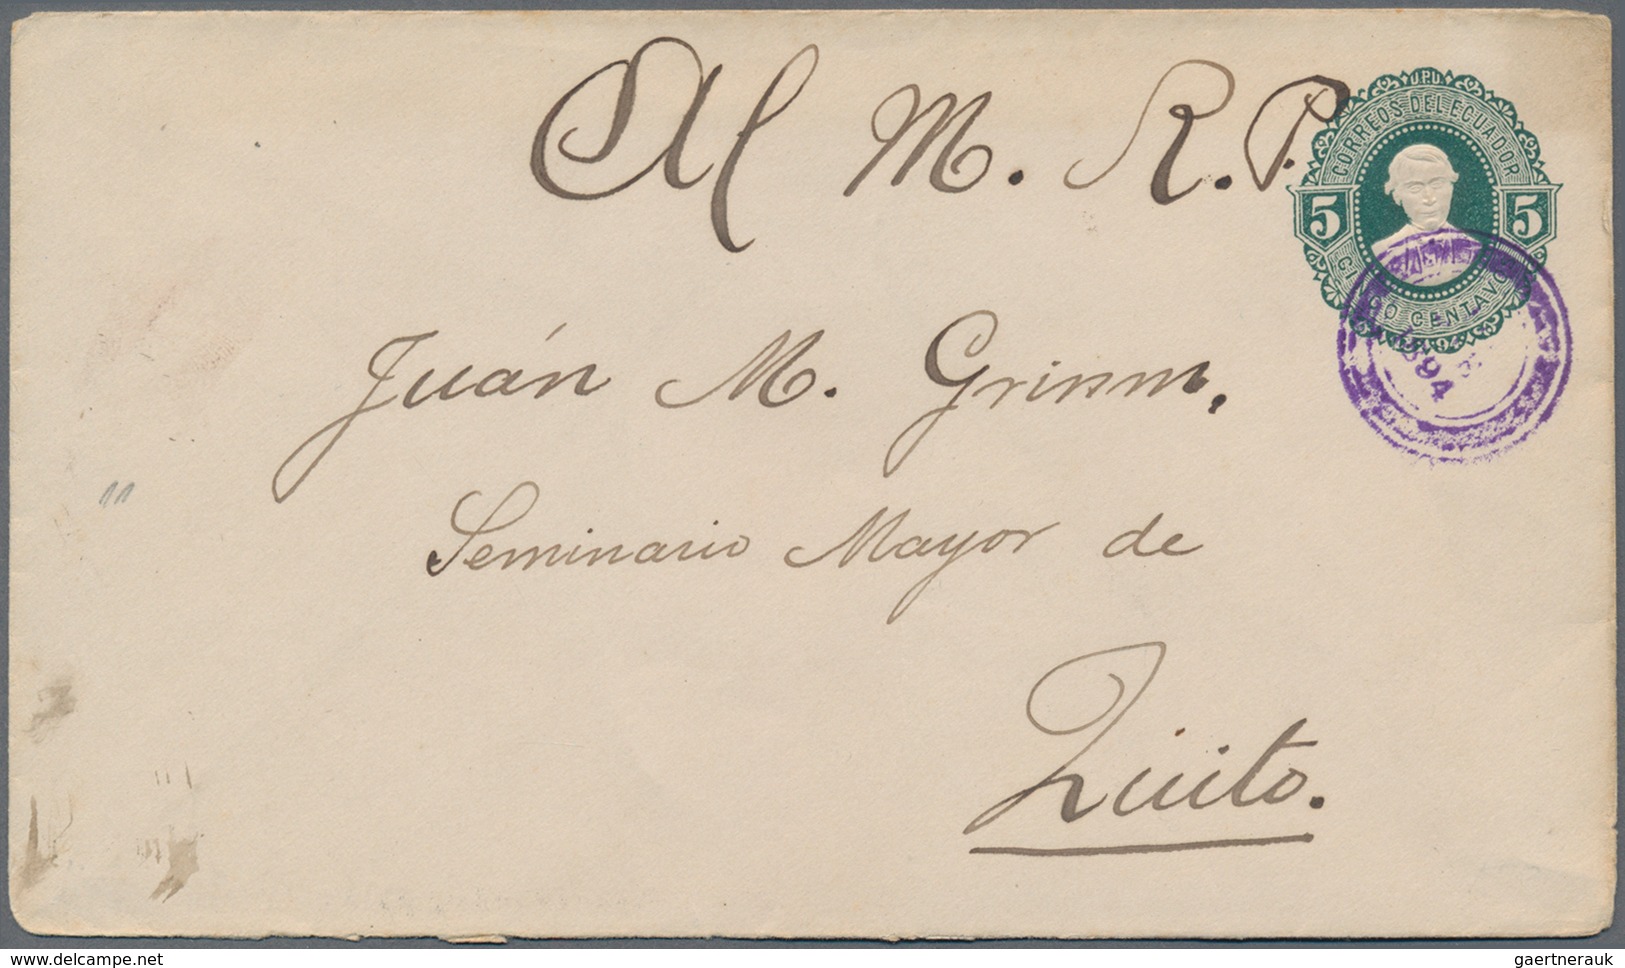 Al M. R. P.
U.P.U.
CORREOS DEL ECUADOR
5 5
CINCO CENTAVOS
1894
Juán M. Grimm,
Seminario Mayor de
Quito.
www.delcampe.net
gaertnerauk